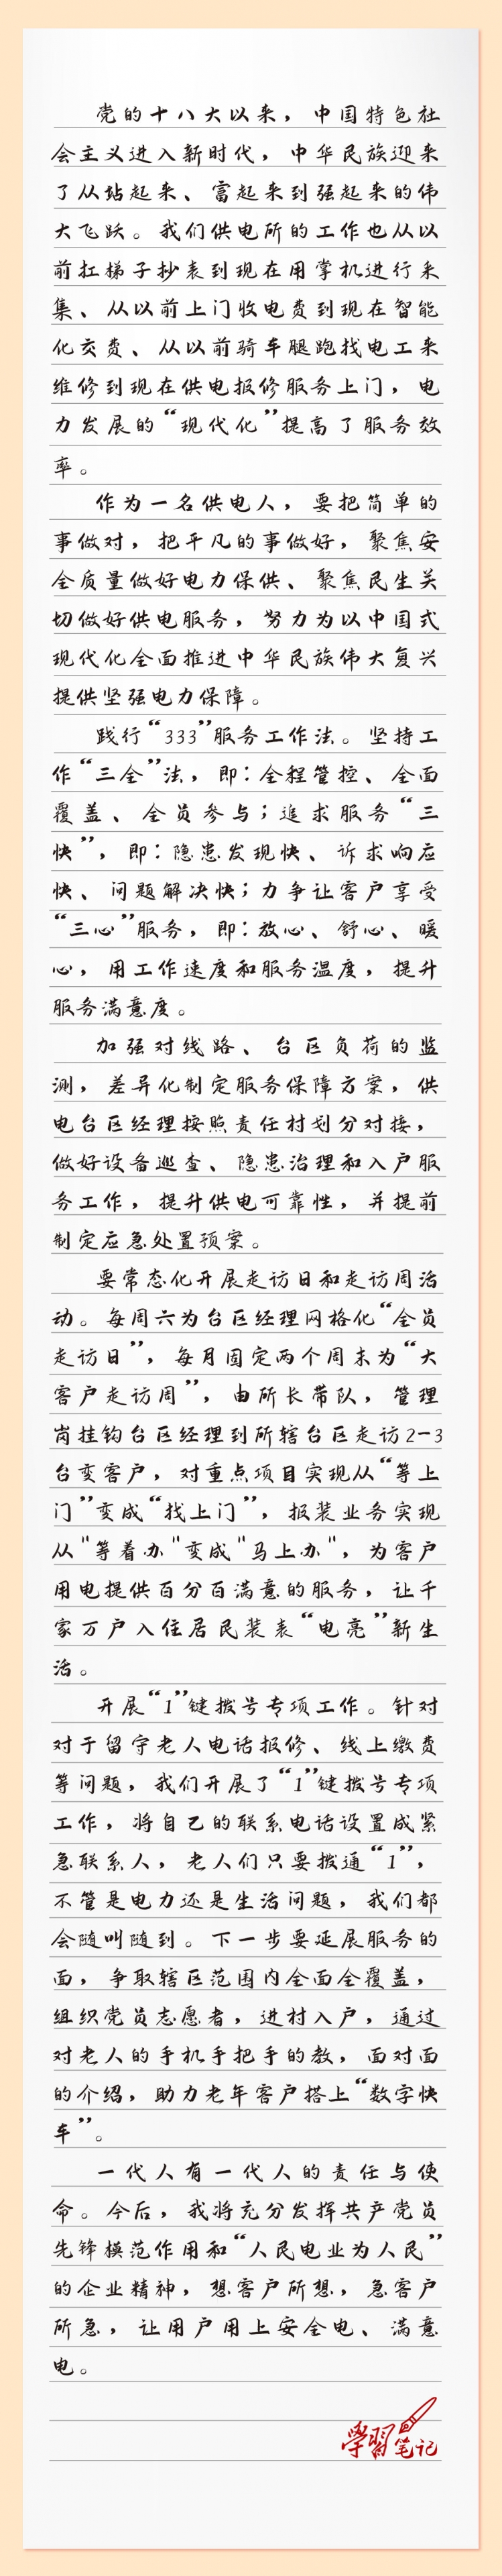 党的十八大以来，中国特色社
会主义进入新时代，中华民族迎来
了从站起来、富起来到强起来的伟
大飞跃。我们供电所的工作也从以
前扛梯子抄表到现在用掌机进行采
集、从以前上门收电费到现在智能
化交费、从以前骑车腿跑找电工来
维修到现在供电报修服务上门，电
力发展的“现代化”提高了服务效
率。
作为一名供电人，要把简单的
事做对，把平凡的事做好，聚焦安
全质量做好电力保供、聚焦民生关
切做好供电服务，努力为以中国式
现代化全面推进中华民族伟大复兴
提供坚强电力保障。
践行“333”服务工作法。坚持工
作“三全”法，即：全程管控、全面
覆盖、全员参与；追求服务“三
快”，即：隐患发现快、诉求响应
快、问题解决快；力争让客户享受
“三心”服务，即：放心、舒心、暖
心，用工作速度和服务温度，提升
服务满意度。
加强对线路、台区负荷的监
测，差异化制定服务保障方案，供
电台区经理按照责任村划分对接，
做好设备巡查、隐患治理和入户服
务工作，提升供电可靠性，并提前
制定应急处置预案。
要常态化开展走访日和走访周活
动。每周六为台区经理网格化“全员
走访日”，每月固定两个周末为“大
客户走访周”，由所长带队，管理
岗挂钩台区经理到所辖台区走访2-3
台变客户，对重点项目实现从“等上
门”变成“找上门”，报装业务实现
从"等着办"变成"马上办"，为客户
用电提供百分百满意的服务，让千
家万户入住居民装表“电亮”新生
活。
开展“1”键拨号专项工作。针对
对于留守老人电话报修、线上缴费
等问题，我们开展了“1”键拨号专项
工作，将自己的联系电话设置成紧
急联系人，老人们只要拨通“1”，
不管是电力还是生活问题，我们都
会随叫随到。下一步要延展服务的
面，争取辖区范围内全面全覆盖，
组织党员志愿者，进村入户，通过
对老人的手机手把手的教，面对面
的介绍，助力老年客户搭上“数字快
车”。
一代人有一代人的责任与使
命。今后，我将充分发挥共产党员
先锋模范作用和“人民电业为人民”
的企业精神，想客户所想，急客户
所急，让用户用上安全电、满意
电。
學習笔记